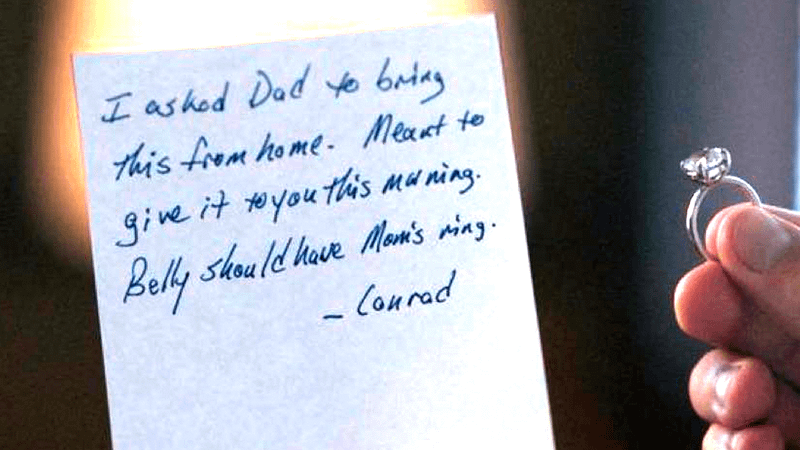 I asked Dad to bring
this from home. Meant to
give it to you this morning.
Belly should have Mom's ring.
- Conrad